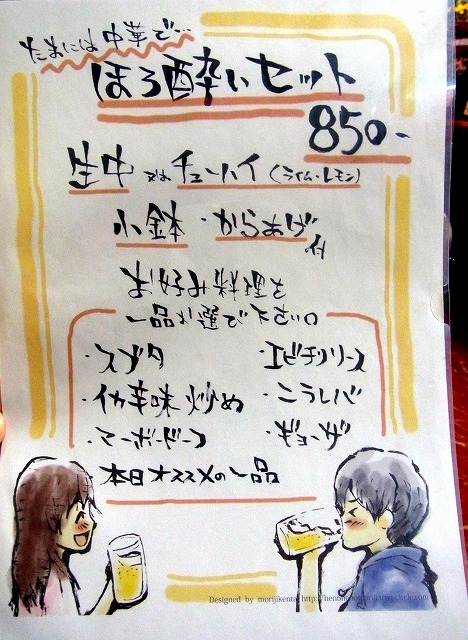 たまには中華で…
ほろ酔いセット
850-
生中 又は チューハイ (ライム・レモン)
小鉢・からあげ付
お好み料理を
一品お選び下さい。
・スブタ
・エビチリソース
・イカ辛味炒め
・ニラレバ
・マーボードーフ
・ギョーザ
本日オススメの一品
Designed by morijikenta